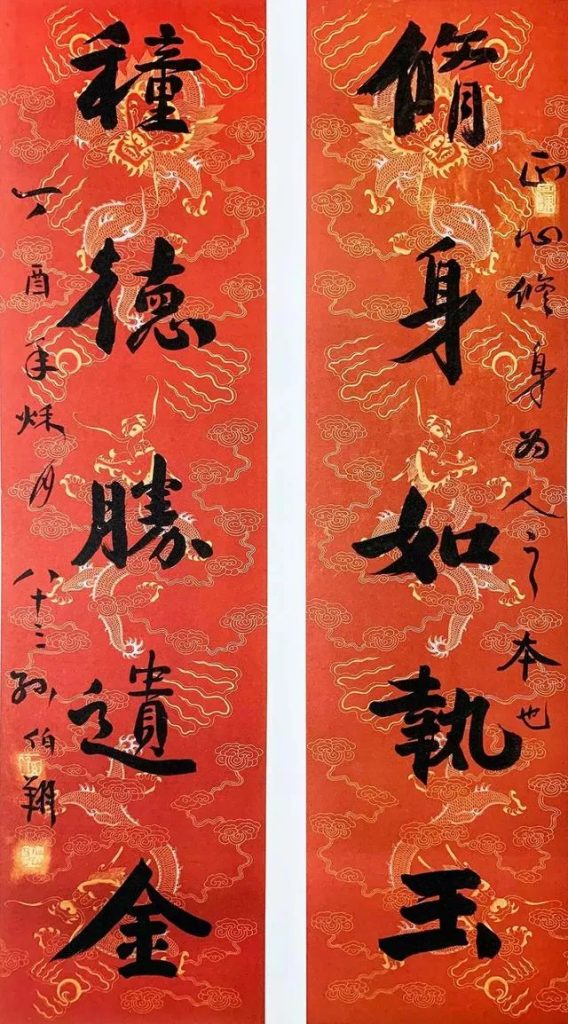 正心修身为人之本也
脩身如執玉
穜德勝遺金
丁酉年秌月
八十三孙伯翔